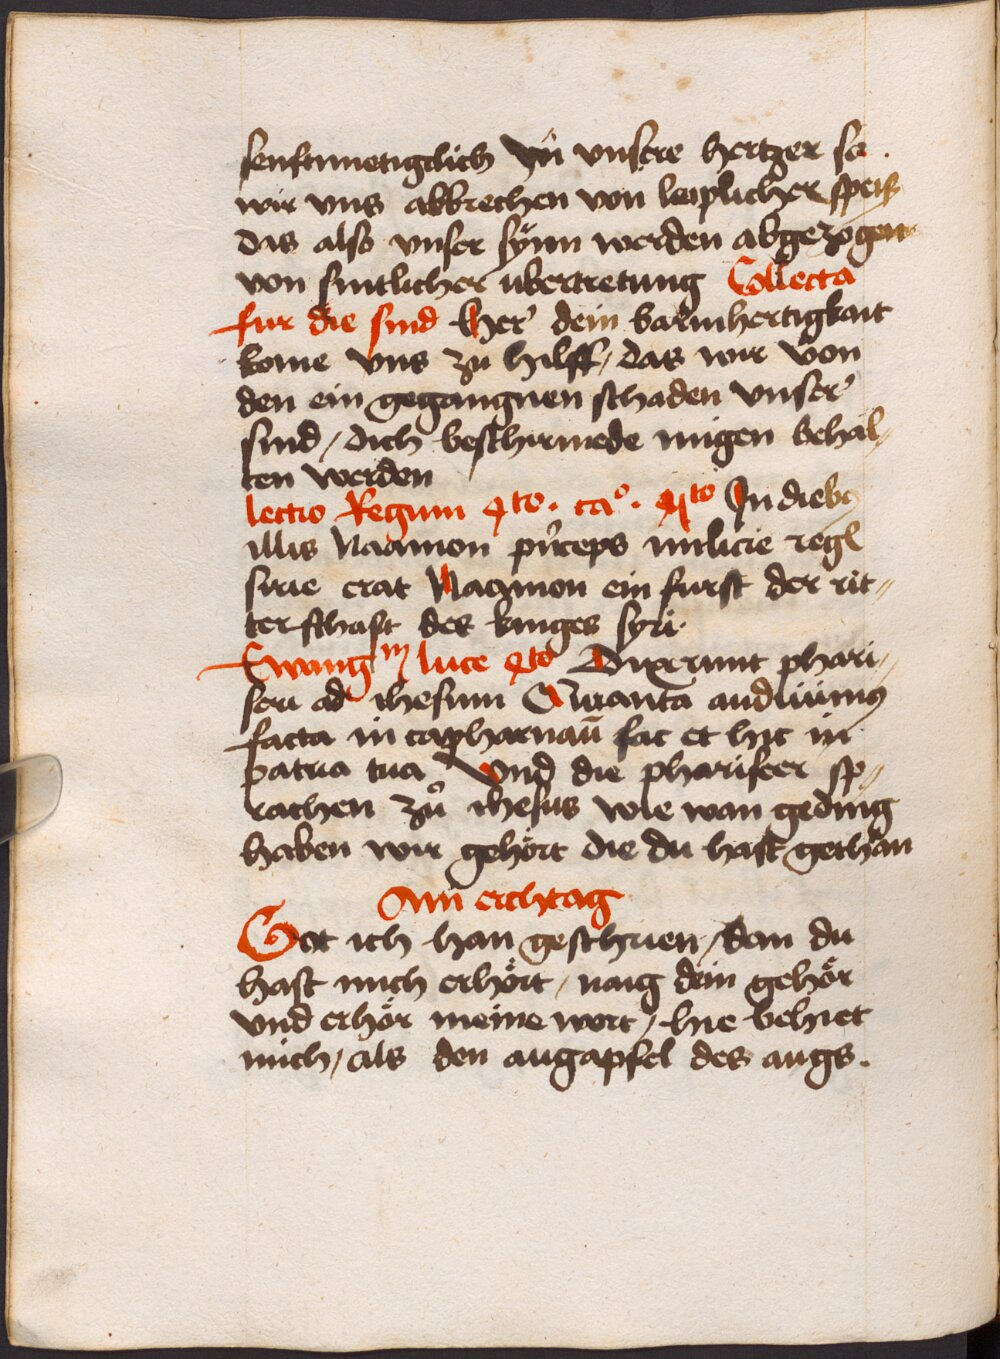 senftmuetigclich vn̄ vnsere hertzer so
wir vns abbrechen von leiplicher speis
das also vnser sÿnn werden abgezogen
von sintlicher ubertretung Collecta
fur die sind Her' dein barmhertigkait
kome vns zu hilff / das wir von
den ein gegangnen schaden vnser'
sind / dich beschirmede mügen behal〃
ten werden
lectio Regum qto. cao. qto In diebꝫ
illis Naamon p'nceps milicie regl
sirie erat Naamon ein furst der rit〃
terschaft des kinges syri.
Ewangm luce qto Dixerunt phari〃
sei ad ihesum Quanta audiuimꝰ
facta in capharnaū fac et hic in
patria tua Vnd die phariseer sp〃
rachen zů ihesus wie wan geding
haben wir gehört die du hast gethan
Am erchtag
Got ich han geschrien / dan du
hast mich erhört / naig dein gehör
vnd erhör meine wort / hie behiet
mich / als den augapfel des augs.